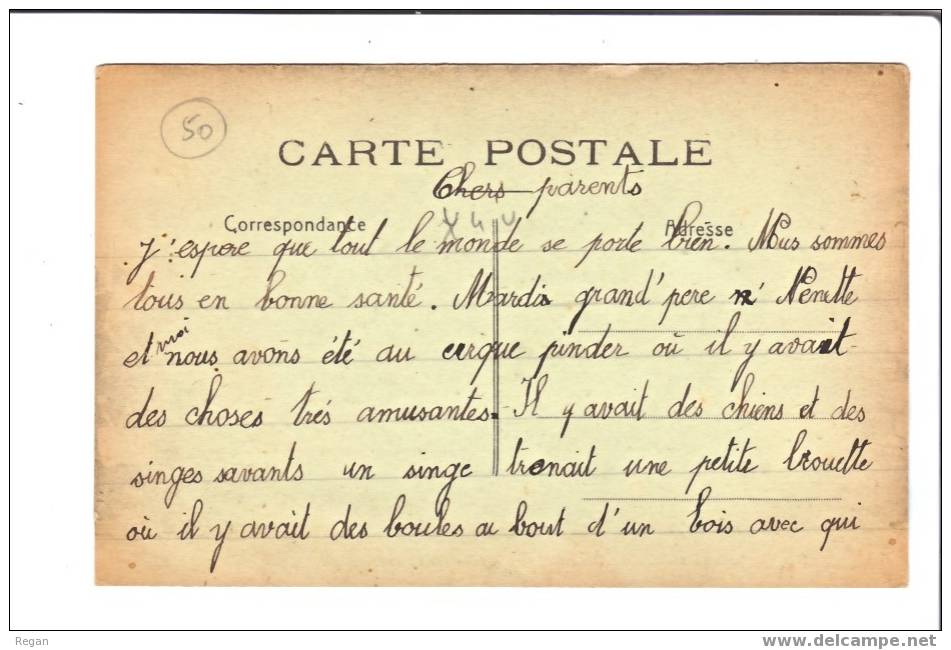 50
CARTE POSTALE
Chers parents
Correspondance
Adresse
J'éspère que tout le monde se porte bien. Nous sommes
tous en bonne santé. Mardi grand'pere Nenette
et moi nous avons été au cirque pinder où il y avait
des choses trés amusantes. Il y avait des chiens et des
singes savants un singe trenait une petite brouette
où il y avait des boules au bout d'un bois avec qui
Regan
www.delcampe.net